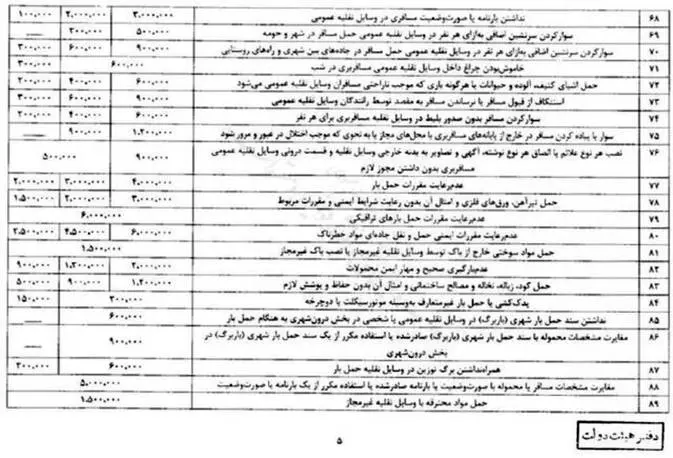 ۶۸ نداشتن بارنامه یا صورت‌وضعیت مسافری در وسایل نقلیه عمومی ۳،۰۰۰،۰۰۰ ۲،۰۰۰،۰۰۰ ۱۰۰،۰۰۰
۶۹ سوارکردن سرنشین اضافی به‌ازای هر نفر در وسایل نقلیه عمومی حمل مسافر در شهر و حومه ۵۰۰،۰۰۰ ۳۰۰،۰۰۰ ــــ
۷۰ سوارکردن سرنشین اضافی به‌ازای هر نفر در وسایل نقلیه عمومی حمل مسافر در جاده‌های بین شهری و راه‌های روستایی ۹۰۰،۰۰۰ ۶۰۰،۰۰۰ ۳۰۰،۰۰۰
۷۱ خاموش‌بودن چراغ داخل وسایل نقلیه عمومی مسافربری در شب ۶۰۰،۰۰۰ ۳۰۰،۰۰۰
۷۲ حمل اشیای کثیف، آلوده و حیوانات یا هرگونه باری که موجب ناراحتی مسافران وسایل نقلیه عمومی می‌شود ۶۰۰،۰۰۰ ۴۰۰،۰۰۰ ۲۰۰،۰۰۰
۷۳ استنکاف از قبول مسافر یا نرساندن مسافر به مقصد توسط رانندگان وسایل نقلیه عمومی ۹۰۰،۰۰۰ ۶۰۰،۰۰۰ ۳۰۰،۰۰۰
۷۴ سوارکردن مسافر بدون صدور بلیط در وسایل نقلیه مسافربری برای هر نفر ۶۰۰،۰۰۰ ۴۰۰،۰۰۰ ۲۰۰،۰۰۰
۷۵ سوار یا پیاده کردن مسافر در خارج از پایانه‌های مسافربری با محل‌های مجاز یا به نحوی که موجب اختلال در عبور و مرور شود ۱،۲۰۰،۰۰۰ ۹۰۰،۰۰۰ ــــ
۷۶ نصب هر نوع علائم یا الصاق هر نوع نوشته، آگهی و تصاویر به بدنه خارجی وسایل نقلیه و قسمت درونی وسایل نقلیه عمومی ۹۰۰،۰۰۰ ۵۰۰،۰۰۰
مسافربری بدون داشتن مجوز لازم
۷۷ عدم‌رعایت مقررات حمل بار ۴،۰۰۰،۰۰۰ ۳،۰۰۰،۰۰۰ ۲،۰۰۰،۰۰۰
۷۸ حمل تیرآهن، ورق‌های فلزی و امثال آن بدون رعایت شرایط ایمنی و مقررات مربوط ۳،۰۰۰،۰۰۰ ۲،۰۰۰،۰۰۰ ۱،۵۰۰،۰۰۰
۷۹ عدم‌رعایت مقررات حمل بارهای ترافیکی ۶،۰۰۰،۰۰۰
۸۰ عدم‌رعایت مقررات ایمنی حمل و نقل جاده‌ای مواد خطرناک ۶،۰۰۰،۰۰۰ ۴،۵۰۰،۰۰۰ ۲،۵۰۰،۰۰۰
۸۱ حمل مواد سوختی خارج از باک توسط وسایل نقلیه غیرمجاز یا نصب باک غیرمجاز ۱،۵۰۰،۰۰۰
۸۲ عدم‌بارگیری صحیح و مهار ایمن محمولات ۲،۰۰۰،۰۰۰ ۱،۲۰۰،۰۰۰ ۹۰۰،۰۰۰
۸۳ حمل کود، زباله، نخاله و مصالح ساختمانی و امثال آن بدون حفاظ و پوشش لازم ۱،۲۰۰،۰۰۰ ۹۰۰،۰۰۰ ۵۰۰،۰۰۰
۸۴ یدک‌کشی یا حمل بار غیرمتعارف به‌وسیله موتورسیکلت یا دوچرخه ۳۰۰،۰۰۰ ۱۵۰،۰۰۰
۸۵ نداشتن سند حمل بار شهری (باربرگ) در وسایل نقلیه عمومی یا شخصی در بخش درون‌شهری به هنگام حمل بار ۶۰۰،۰۰۰ ــــ
۸۶ مغایرت مشخصات محموله با سند حمل بار شهری (باربرگ) صادرشده یا استفاده مکرر از یک سند حمل بار شهری (باربرگ) در ۹۰۰،۰۰۰ ــــ
بخش درون‌شهری
۸۷ همراه‌نداشتن برگ توزین در وسایل نقلیه حمل بار ۶۰۰،۰۰۰ ۳۰۰،۰۰۰
۸۸ مغایرت مشخصات مسافر یا محموله با صورت‌وضعیت یا بارنامه صادرشده یا استفاده مکرر از یک بارنامه یا صورت‌وضعیت ۵،۰۰۰،۰۰۰
۸۹ حمل مواد محترقه با وسایل نقلیه غیرمجاز ۱،۵۰۰،۰۰۰
۵
دفتر هیئت دولت